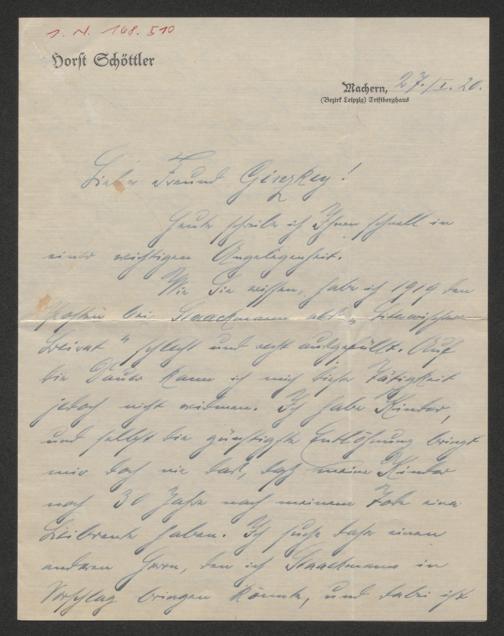 I. N. 148.510
Horst Schöttler
Machern, 27./I. 20.
(Bezirk Leipzig) Triftberghaus
Lieber Freund Ginzkey!
Heute schreibe ich Ihnen schnell in
einer wichtigen Angelegenheit.
Wie Sie wissen, habe ich 1919 den
Posten bei Staackmann als „Literarischer
Beirat“ schlecht und recht ausgefüllt. Auf
die Dauer kann ich mich dieser Tätigkeit
jedoch nicht widmen. Ich habe Kinder,
und selbst die günstigste Entlöhnung bringt
mir doch nie das, daß meine Kinder
noch 30 Jahre nach meinem Tode eine
Leibrente haben. Ich suche daher einen
anderen Herrn, den ich Staackmann in
Vorschlag bringen könnte, und dabei ist